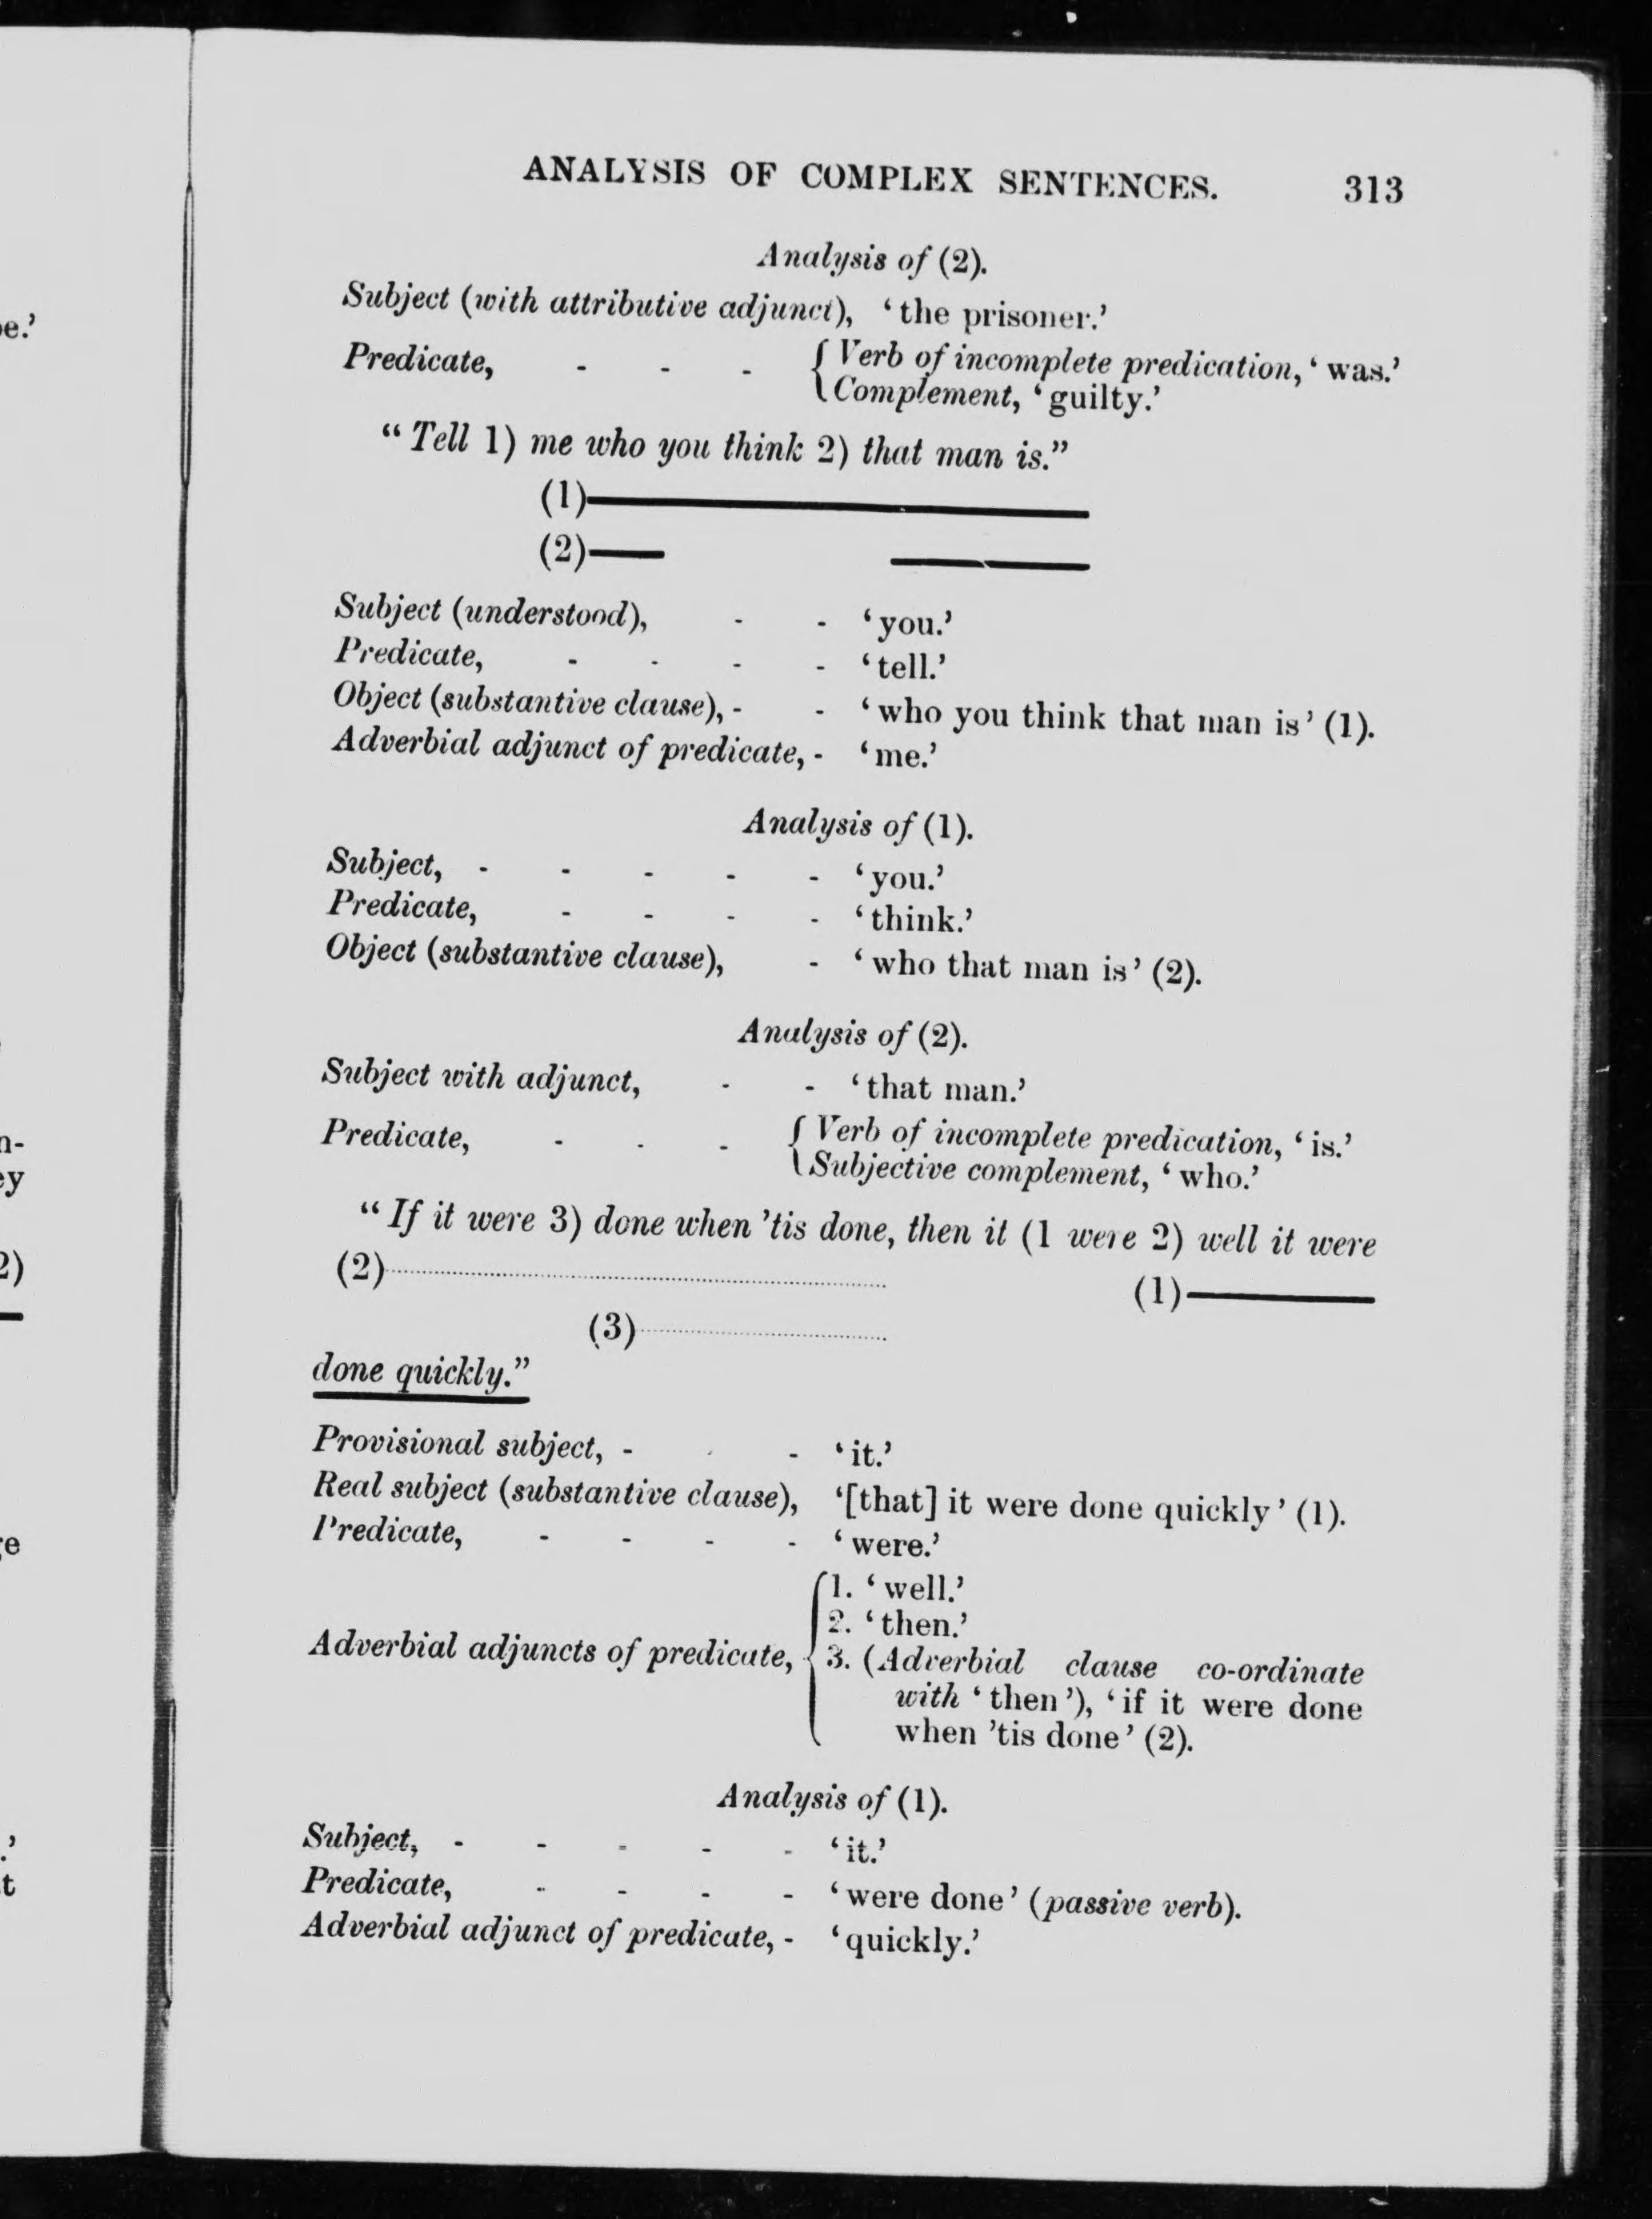 ANALYSIS OF COMPLEX SENTENCES. 313
Analysis of (2).
Subject (with attributive adjunct), ‘the prisoner.’
Predicate, - - - { Verb of incomplete predication, ‘was.’
Complement, ‘guilty.’
“Tell 1) me who you think 2) that man is.”
(1)
(2)
Subject (understood), - - ‘you.’
Predicate, - - - - ‘tell.’
Object (substantive clause), - - ‘who you think that man is’ (1).
Adverbial adjunct of predicate, - ‘me.’
Analysis of (1).
Subject, - - - - - ‘you.’
Predicate, - - - - ‘think.’
Object (substantive clause), - ‘who that man is’ (2).
Analysis of (2).
Subject with adjunct, - - ‘that man.’
Predicate, - - - { Verb of incomplete predication, ‘is.’
Subjective complement, ‘who.’
“If it were 3) done when ’tis done, then it (1 were 2) well it were
(2) (1)
(3)
done quickly.”
Provisional subject, - - - ‘it.’
Real subject (substantive clause), ‘[that] it were done quickly’ (1).
Predicate, - - - - ‘were.’
1. ‘well.’
2. ‘then.’
Adverbial adjuncts of predicate, { 3. (Adverbial clause co-ordinate
with ‘then’), ‘if it were done
when ’tis done’ (2).
Analysis of (1).
Subject, - - - - - ‘it.’
Predicate, - - - - ‘were done’ (passive verb).
Adverbial adjunct of predicate, - ‘quickly.’